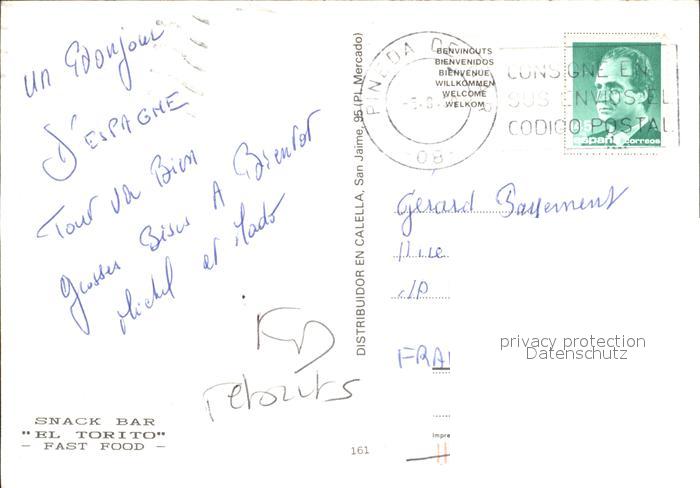 un Bonjour
D'ESPAGNE
Tout va Bien
Grosses Bises A Bientot
Michel et Mado
retouts
SNACK BAR
"EL TORITO"
- FAST FOOD -
161
DISTRIBUIDOR EN CALELLA, San Jaime, 95 (Pl. Mercado)
PINEDA DE MAR
08
BENVINGUTS
BIENVENIDOS
BIENVENUE
WILLKOMMEN
WELCOME
WELKOM
CONSIGNE EN
SUS ENVIOS EL
CODIGO POSTAL
España correos
Gérard
FRA
privacy protection
Datenschutz
Impre